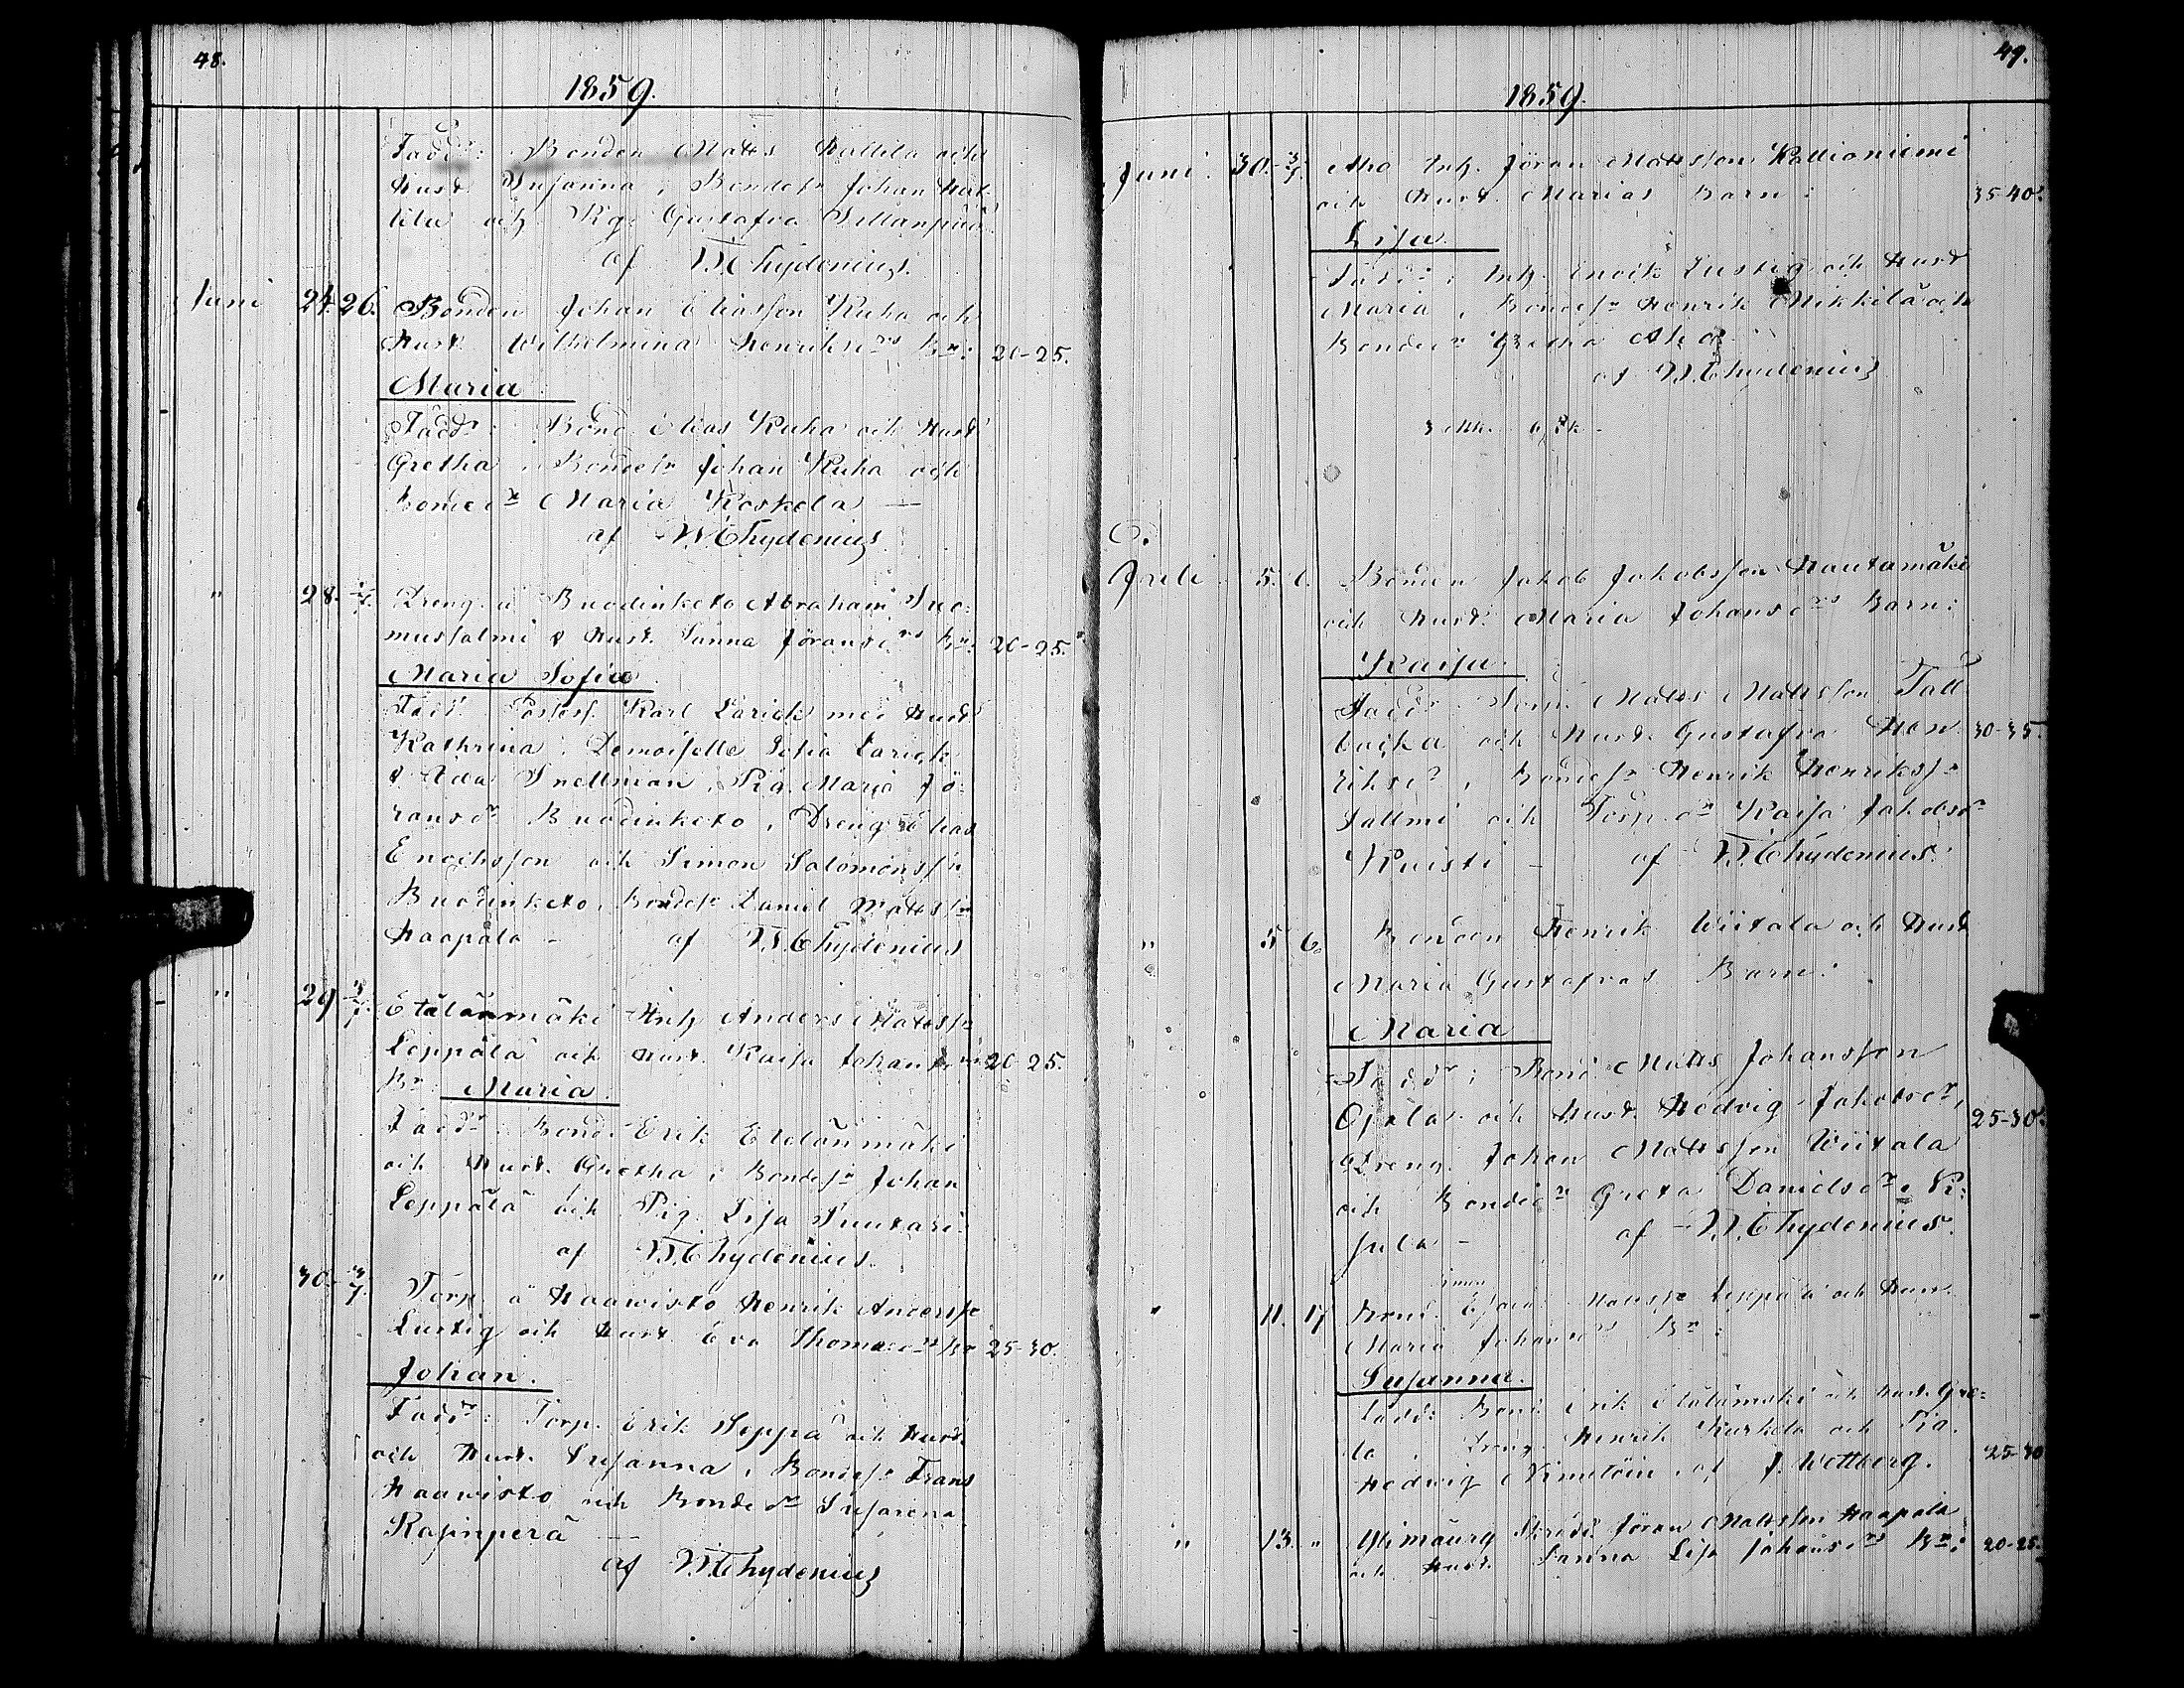 48.
1859.
Fadd: Bonden Matts Kallila och
Hust. Susanna, Bondes. Johan Kal
lila och Pig. Gustafva Sillanpää
af W. Chydenius.
Juni 24. 26. Bonden Johan Eliasson Ruha och
Hust. Wilhelmina Henriksdrs Bn: 20-25.
Maria
Fadd: Bond. Elias Ruha och Hust
Gretha, Bondesn Johan Ruha och
Bondedr Maria Koskela —
af W. Chydenius
" 28. 1/7. Dreng. å Buodinketo Abraham Suo=
mussalmi & Hust. Sanna Göransdrs Bn: 20-25.
Maria Sofia
Fadd. Possess. Karl Larick med Hust
Kathrina, Demoiselle Sofia Larick
& Ida Snellman, Pig. Maria Jö=
ransdr Buodinketo, Dreng. Elias
Enochsson och Simon Salomonssn
Buodinketo, Bondesn Daniel Mattssn
Haapala - af W. Chydenius
" 29. 3/7. Etäläänmäki Inh. Anders Mattssn
Leppälä och Hust. Kaisa Johansdrs 20-25.
Bn: Maria.
Faddr: Bond. Erik Etelänmäki
och Hust. Gretha, Bondesn Johan
Leppälä och Pig. Lisa Suutari.
af W. Chydenius.
" 30. 3/7. Torp. å Haawisto Henrik Anderssn
Lustig och Hust. Eva Thomasdrs Bn 25-30.
Johan.
Faddr: Torp. Erik Seppä och Hust.
och Hust. Susanna, Bondesn Frans
Haawisto och Bondedr Susanna
Rajinperä —
af W. Chydenius
49.
1859.
Juni. 30. 3/7. Aho Inh. Jöran Mattsson Kallioniemi
och Hust. Marias Barn: 35-40.
Lisa.
Faddr: Inh. Enoik Lustig och Hust
Maria, Bondesn Henrik Mikkilä och
Bondedr Gretha Aho
af W. Chydenius
Juli 5. 6. Bonden Jakob Jakobsson Hautamäki
och Hust. Maria Johansdrs Barn:
Kaisa.
Faddr: Bond. Matts Mattsson Tall
backa och Hust. Gustafva Hen 30-35.
riksdr, Bondesn Henrik Henrikssn
Sallmi och Torp.dr Kaisa Jakobsdr
Ruisti - af W. Chydenius.
" 5. 6. Bonden Henrik Wiitala och Hust
Maria Gustafvas Barn:
Maria
Faddr: Bond. Matts Johansson
Ojala och Hust. Hedvig Jakobsdr, 25-30.
Dreng. Johan Mattsson Wiitala
och Bondedr Greta Danielsdr
jula - af W. Chydenius.
" 11. 17 Bond. Mattssn Leppälä och Hust.
Maria Johansdrs Bn:
Susanna.
Fadd: Bond. Erik Etälämäki och Hust. Gre=
ta, Dreng. Henrik Kurkela och Pig.
Hedvig af J. Wettberg. 25-30
" 13. " Ylimaurq Jöran Mattsson Haapala
och Hust. Sanna Lisa Johansdrs Bn: 20-25.